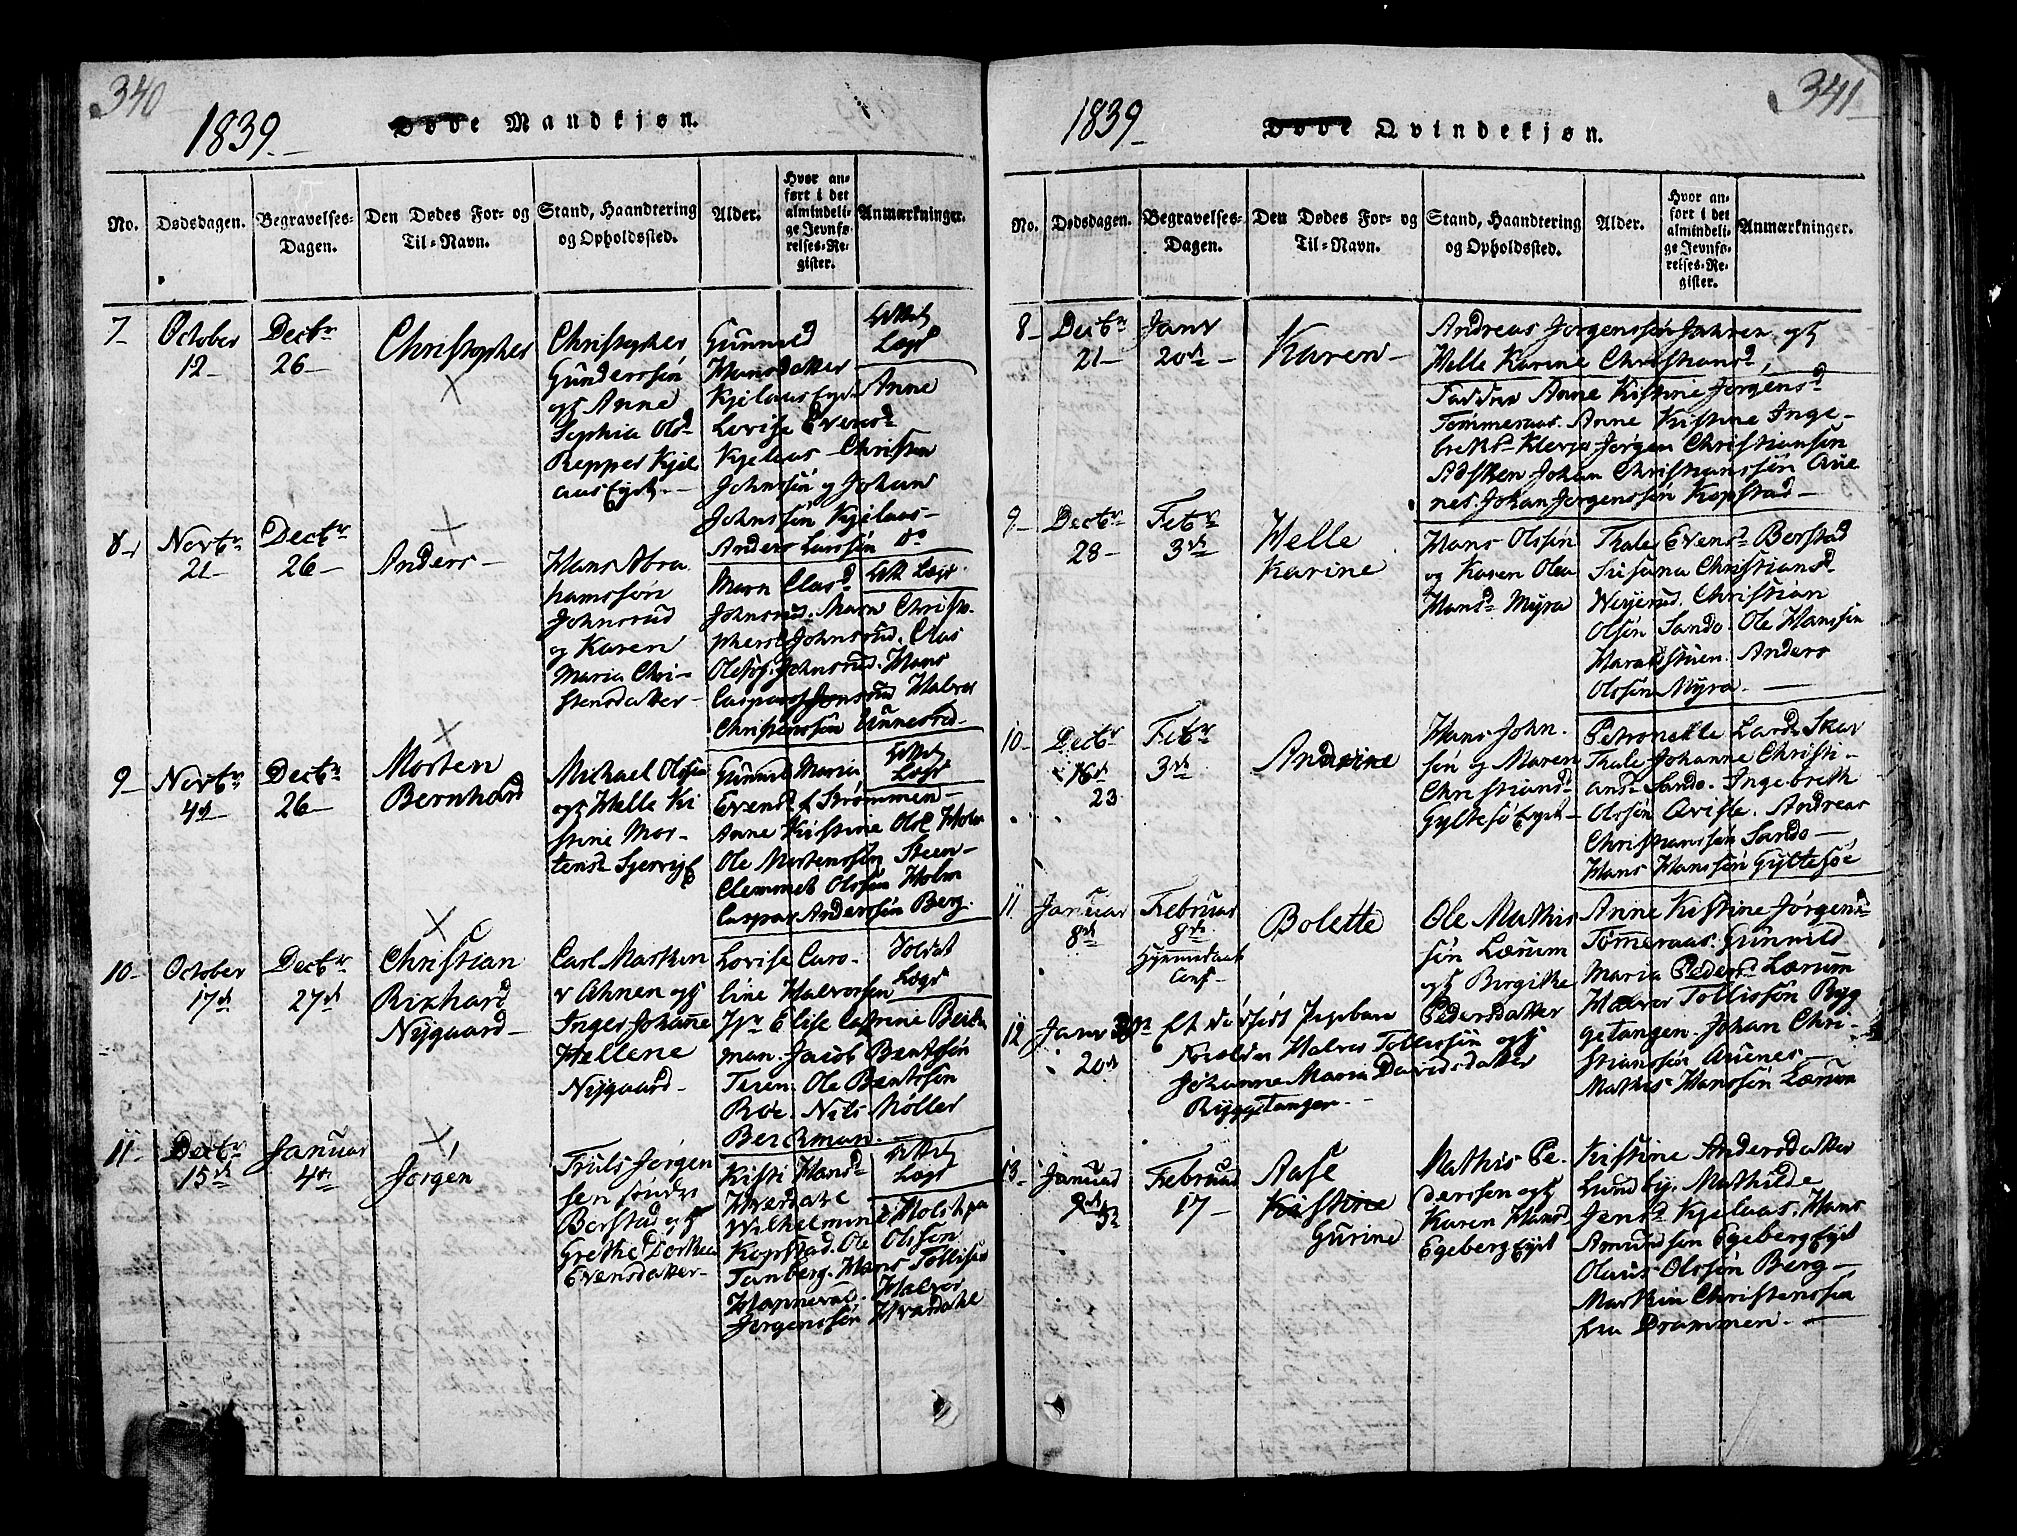 340
1839
Døde Mandkjøn.
No.
Dødsdagen.
Begravelses-
Dagen.
Den Dødes For- og
Til-Navn.
Stand, Haandtering
og Opholdssted.
Alder.
Hvor an-
ført i det
almindeli-
ge Jevnfø-
relses-Re-
gister.
Anmærkninger.
7
October
12
Decbr
26
Christopher
Christopher
Gunderssøn
og Anne
Sophia Olsd
Repper Kjel
aas Eyet
Gunnild
Hansdatter
Kjelaas Eyet Anne
Lovise Evensd
Kjelaas Christen
Johnssøn og Johan
Johnssøn Kjelaas
Anders Larssøn do
Attest
Lagd
8
Novbr
21
Decbr
26
Anders
Hans Abra
hamssøn
Johnsrud
og Karen
Maria Chri-
stensdatter
Maren Clasd
Johnsrud. Maren Christo-
phersd Johnsrud. Clas
Olsøs. Johnsrud. Hans
Caspars Jonsrud Halvor
Christenssøn Unnesrud
Att Lagd
9
Novbr
4d
Decbr
26
Morten
Bernhard
Michael Olssen
og Helle Ki
stine Mor-
tensd Sjervig
Gunnild Maria
Evensd f Strømmen
Anne Kistine Olsd Holm
Ole Mortenssøn Steen
Clemmet Olssøn Holm
Caspar Anderssøn Berg.
Attest
Lagd
10
October
17d
Decbr
27d
Christian
Rixhard
Nygaard
Carl Marthin
v Ahnen og
Inger Johanne
Hellene
Nygaard
Lovise Caro-
line Halvorsen
Jfr Elise Catrine Beich
man. Jacob Bentssøn
Teien. Ole Bentssøn
Roe. Nils Møller
Berchman.
Lagd
11
Decbr
15d
Januar
4d
Jørgen
Truls Jørgen
sen søndre
Borstad og
Grethe Dorthea
Evensdatter
Kisti Hansd
Hvedahle
Wilhelmine
Kopstad. Ole Olssøn
Tanberg. Hans Tollissen
Hanneval. Halvor
Jørgenssøn Hvadahle
Attest
Lagd
341
1839
Døde Qvindekjøn.
No.
Dødsdagen.
Begravelses-
Dagen.
Den Dødes For- og
Til-Navn.
Stand, Haandtering
og Opholdssted.
Alder.
Hvor an-
ført i det
almindeli-
ge Jevnfø-
relses-Re-
gister.
Anmærkninger.
8
Decbr
21
Janr
20d
Karen
Andreas Jørgenssøn Jahren og
Helle Karine Christiansd
Faddre Anne Kistine Jørgensd
Tømmeraas. Anne Kistine Inge-
bretsd Klevje Jørgen Christianssøn
Adsken Johan Christianssøn Aue
nes. Johan Jørgenssøn Kopstad
9
Decbr
28
Febr
3d
Helle
Karine
Hans Olssøn
og Karen Olea
Hansd Myra
Thale Evensd Borstad
Susana Christiansd
Neyerud. Christian
Olsøn Sando. Ole Hanssøn
Haraldstuen. Anders
Olssøn Myra.
10
Decbr
16d
23
Febr
3d
Andrine
Hans John-
søn og Maren
Christiansd
Gyltesø Eyet
Petronelle Larsd Skar
Thale Johanne Christi-
ansd Sando. Ingebreth
Olssøn Qvisle. Andreas
Christianssøn Sando
Hans Hanssøn Gyltesøe
11
Januar
8d
Februar
8d
Bolette
Ole Mathis
søn Lærum
og Birgithe
Pedersdatter
Anne Kistine Jørgensd
Tømmeraas. Gunnild
Maria Pedersd Lærum
Halvor Tollissøn Ryg
getangen. Johan Chri-
stianssøn Auenes
Mathis Hanssøn Lærum
12
Janr
20d
Et dødfødt Pigebarn
Forældre Halvor Tollissøn og
Johanne Maria Davidsdatter
Ryggetangen
13
Januar
Februar
17
Aase
Kistine
Gurine
Mathis Pe-
derssen og
Karen Hansd
Egeberg Eyet
Kistine Andersdatter
Lundby. Mathilde
Jensd Kjelaas. Hans
Amundssøn Egeberg Eyet
Olaus Olssøn Berg
Marthin Christenssøn
fra Drammen.